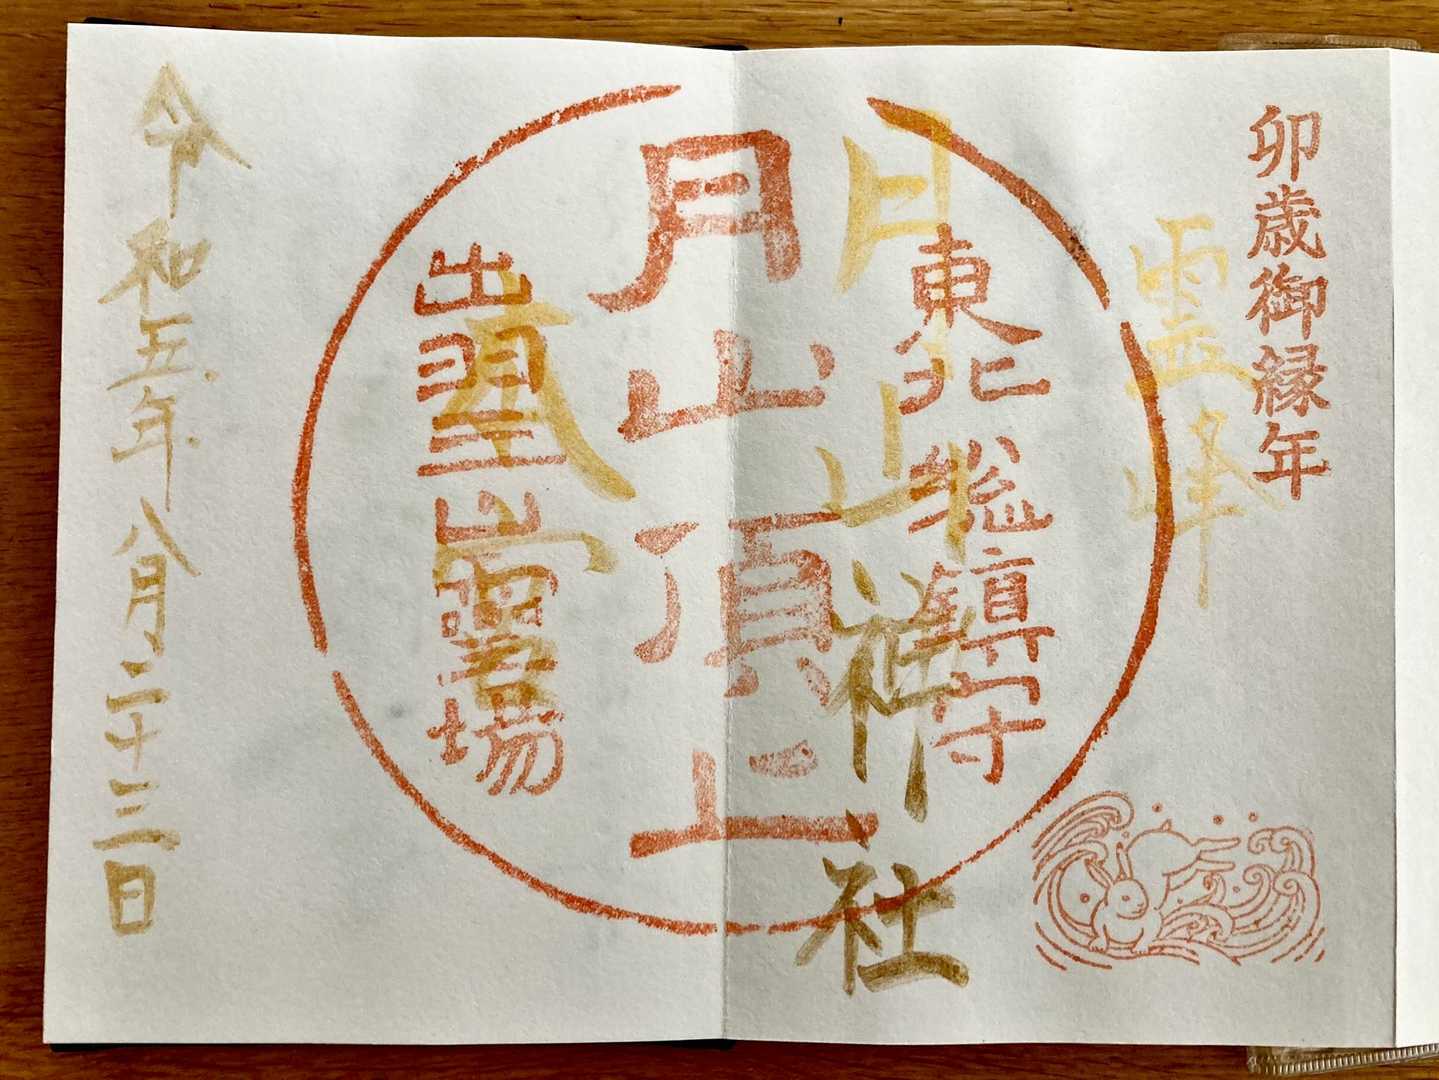 卯歳御縁年
霊峰
東北総鎮守
月山神社
月山頂上
本宮
出羽三山霊場
令和五年八月二十三日